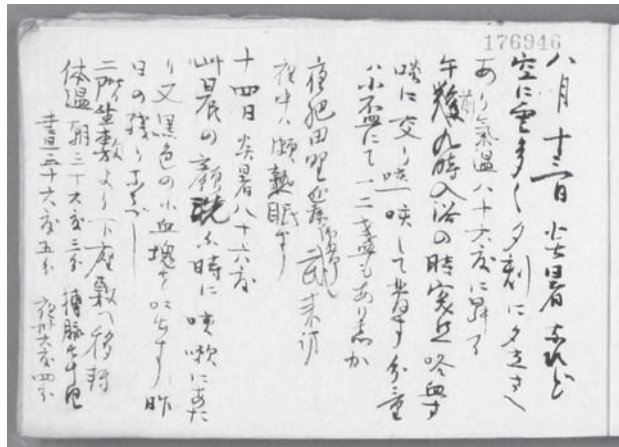 176946
八月十三日 炎暑 なれど
空に雲多く夕刻に夕立さへ
あり 気温八十六度に昇る
午前九時入浴の時突然咯血す
咳に交り 咳一咳して 分量
小盃にて一二盞もありしか
夜肥田野 来訪
夜中ハ頗熱眠す
十四日 炎暑八十六度
此晨の顔洗ふ時に咳嗽にあた
り又黒色の小血塊を吐出す 昨
日の残りなるべし
二階坐敷より下座敷へ移転
体温 朝三十六度三分 搏脈七十
昼三十六度五分 夜 六度四分